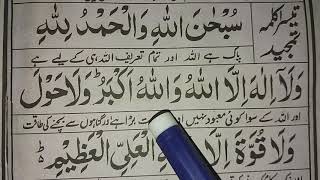 تیسرا کلمہ تمجید
سُبْحٰنَ اللّٰهِ وَالْحَمْدُ لِلّٰهِ
پاک ہے اللہ اور تمام تعریف اللہ ہی کے لیے ہے
وَلَآ اِلٰهَ اِلَّا اللّٰهُ وَاللّٰهُ اَكْبَرُ وَلَا حَوْلَ
اور اللہ کے سوا کوئی معبود نہیں اور بڑا ہے گناہوں سے بچنے کی طاقت
وَلَا قُوَّةَ اِلَّا الْعَلِيِّ الْعَظِيْمِ